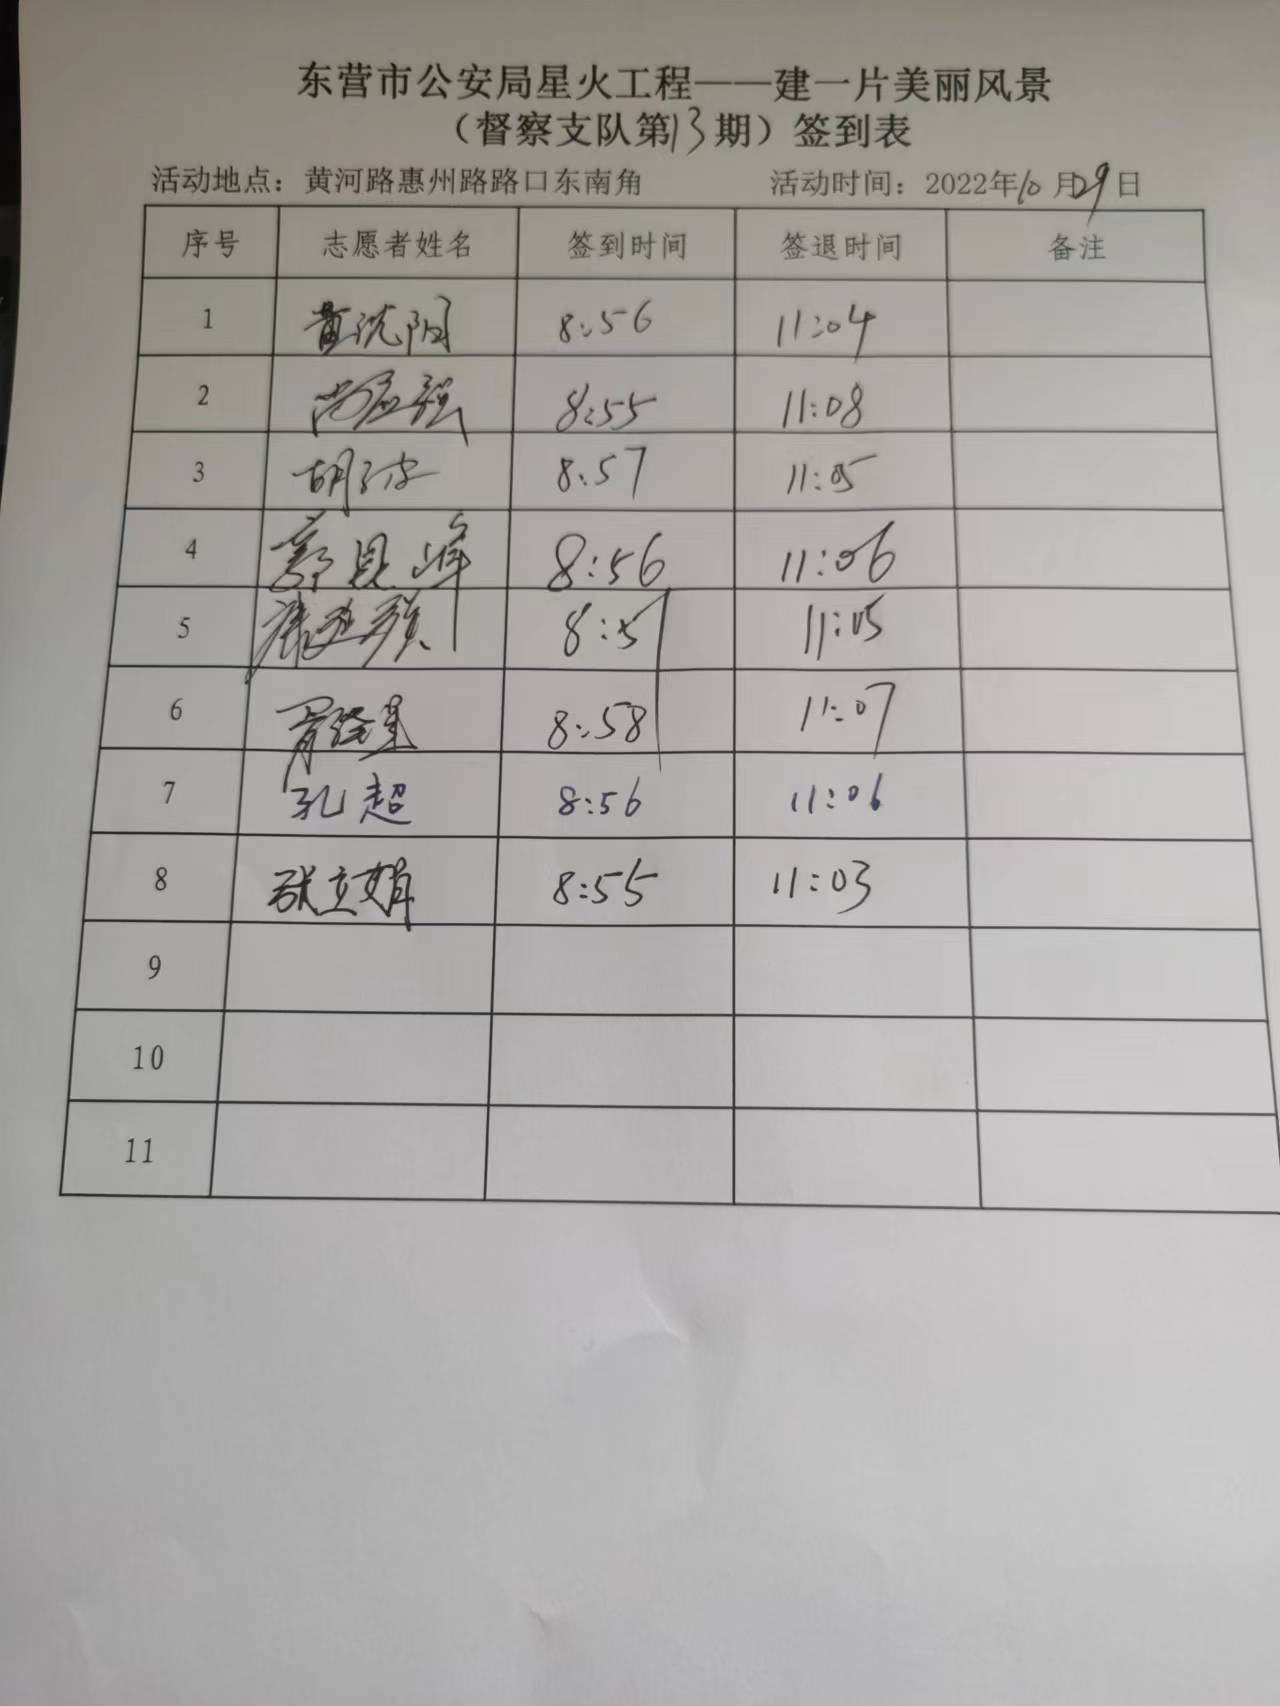 东营市公安局星火工程——建一片美丽风景
（督察支队第13期）签到表
活动地点：黄河路惠州路路口东南角 活动时间：2022年10月29日
序号 志愿者姓名 签到时间 签退时间 备注
1 黄沈阳 8:56 11:04
2 8:55 11:08
3 胡子波 8:57 11:05
4 郭见峰 8:56 11:06
5 8:57 11:05
6 8:58 11:07
7 孔超 8:56 11:06
8 张立娟 8:55 11:03
9
10
11